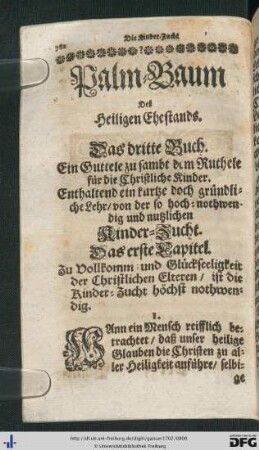 Die Kinder-Zucht
Palm-Baum
Des
Heiligen Ehestands.
Das dritte Buch.
Ein Guttele zu sambt dem Ruthele
für die Christliche Kinder.
Enthaltend ein kurtze doch gründli-
che Lehr/ von der so hoch: nothwen-
dig und nutzlichen
Kinder-Zucht.
Das erste Capitel.
Zu Vollkomm und Glückseeligkeit
der Christlichen Elteren / ist die
Kinder-Zucht höchst nothwen-
dig.
I.
WAnn ein Mensch reifflich be-
trachtet / daß unser heilige
Glauben die Christen zu al-
ler Heiligkeit anführe/ selbi-
ge
http://dl.ub.uni-freiburg.de/diglit/
© Universitätsbibliothek Freiburg
gefördert durch die
DFG